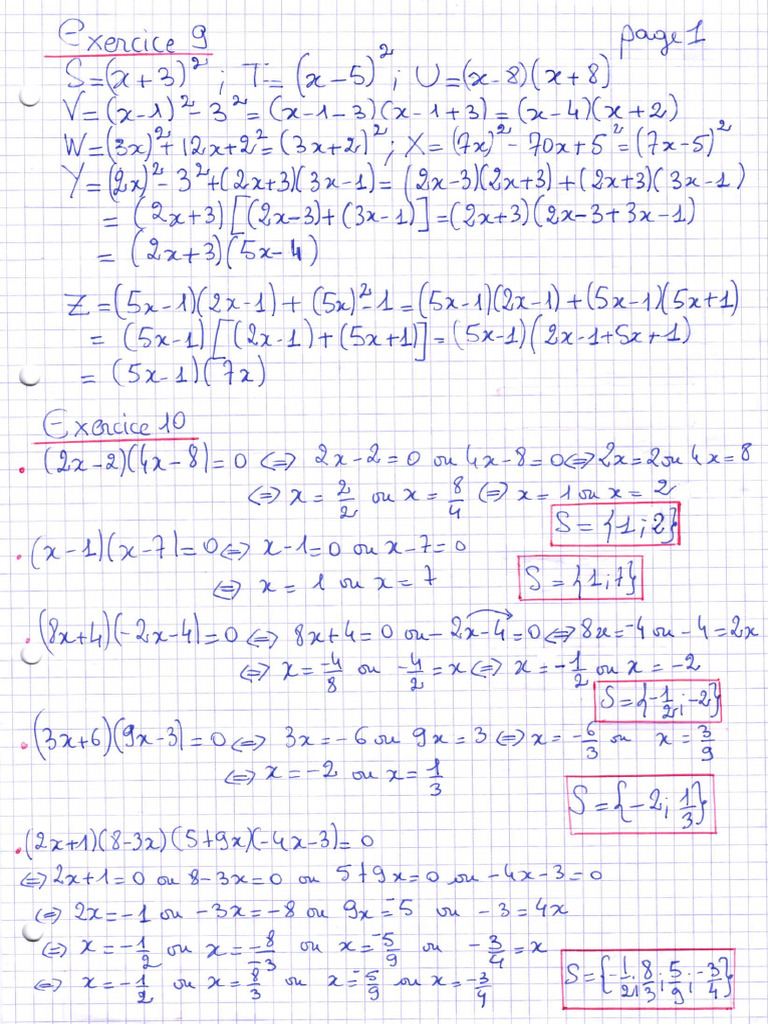 Exercice 9
page 1
S=(x+3)²; T=(x-5)²; U=(x-8)(x+8)
V=(x-1)²-3²=(x-1-3)(x-1+3)=(x-4)(x+2)
W=(3x)²+12x+2²=(3x+2)²; X=(7x)²-70x+5²=(7x-5)²
Y=(2x)²-3²+(2x+3)(3x-1)=(2x-3)(2x+3)+(2x+3)(3x-1)
=(2x+3)[(2x-3)+(3x-1)]=(2x+3)(2x-3+3x-1)
=(2x+3)(5x-4)
Z=(5x-1)(2x-1)+(5x)²-1=(5x-1)(2x-1)+(5x-1)(5x+1)
=(5x-1)[(2x-1)+(5x+1)]=(5x-1)(2x-1+5x+1)
=(5x-1)(7x)
Exercice 10
• (2x-2)(4x-8)=0 ⇔ 2x-2=0 ou 4x-8=0 ⇔ 2x=2 ou 4x=8
⇔ x=2/2 ou x=8/4 ⇔ x=1 ou x=2
S={1;2}
• (x-1)(x-7)=0 ⇔ x-1=0 ou x-7=0
⇔ x=1 ou x=7
S={1;7}
• (8x+4)(-2x-4)=0 ⇔ 8x+4=0 ou -2x-4=0 ⇔ 8x=-4 ou -4=2x
⇔ x=-4/8 ou -4/2=x ⇔ x=-1/2 ou x=-2
S={-1/2;-2}
• (3x+6)(9x-3)=0 ⇔ 3x=-6 ou 9x=3 ⇔ x=-6/3 ou x=3/9
⇔ x=-2 ou x=1/3
S={-2;1/3}
• (2x+1)(8-3x)(5+9x)(-4x-3)=0
⇔ 2x+1=0 ou 8-3x=0 ou 5+9x=0 ou -4x-3=0
⇔ 2x=-1 ou -3x=-8 ou 9x=-5 ou -3=4x
⇔ x=-1/2 ou x=-8/-3 ou x=-5/9 ou -3/4=x
⇔ x=-1/2 ou x=8/3 ou x=-5/9 ou x=-3/4
S={-1/2;8/3;-5/9;-3/4}